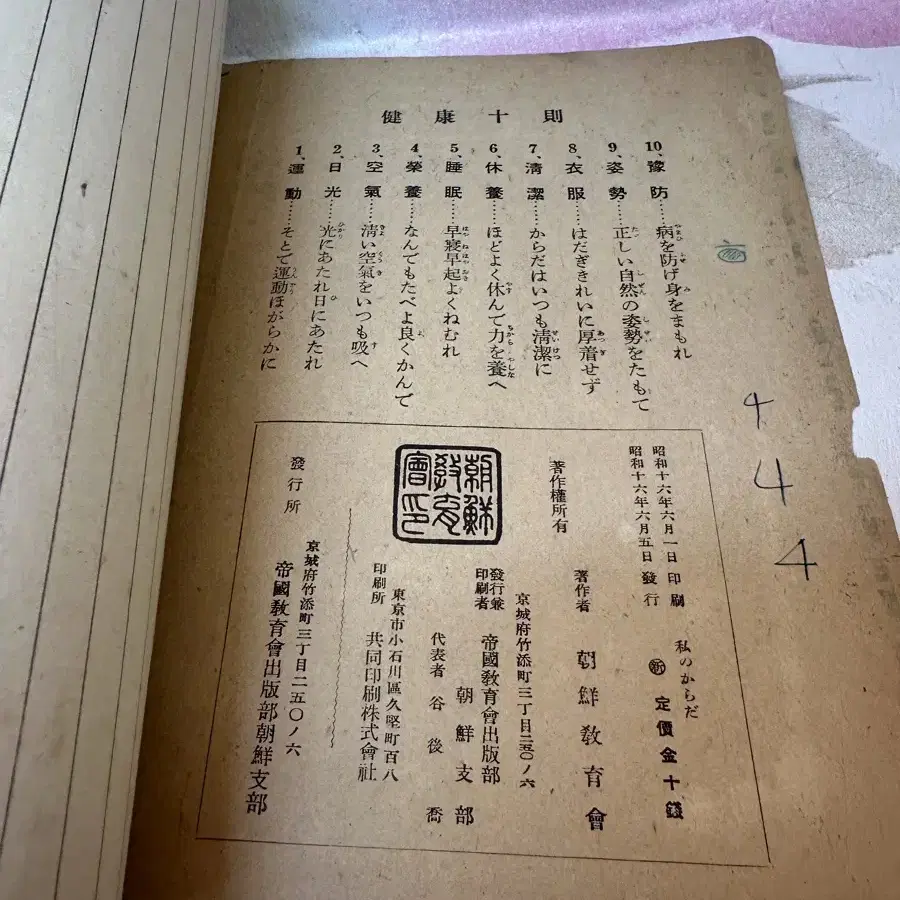 健康十則
1、運動……そとで運動ほがらかに
2、日光……光にあたれ日にあたれ
3、空氣……清い空氣をいつも吸へ
4、榮養……なんでもたべよ良くかんで
5、睡眠……早寢早起よくねむれ
6、休養……ほどよく休んで力を養へ
7、清潔……からだはいつも清潔に
8、衣服……はだぎきれいに厚着せず
9、姿勢……正しい自然の姿勢をたもて
10、豫防……病を防げ身をまもれ
昭和十六年六月一日印刷
昭和十六年六月五日發行
私のからだ
新 定價金十錢
著作權所有
著作者 朝鮮敎育會
京城府竹添町三丁目二五〇ノ六
發行兼印刷者 帝國敎育會出版部
朝鮮支部
代表者 谷後喬
東京市小石川區久堅町百八
印刷所 共同印刷株式會社
朝鮮敎育會印
發行所
京城府竹添町三丁目二五〇ノ六
帝國敎育會出版部朝鮮支部
4
4
4